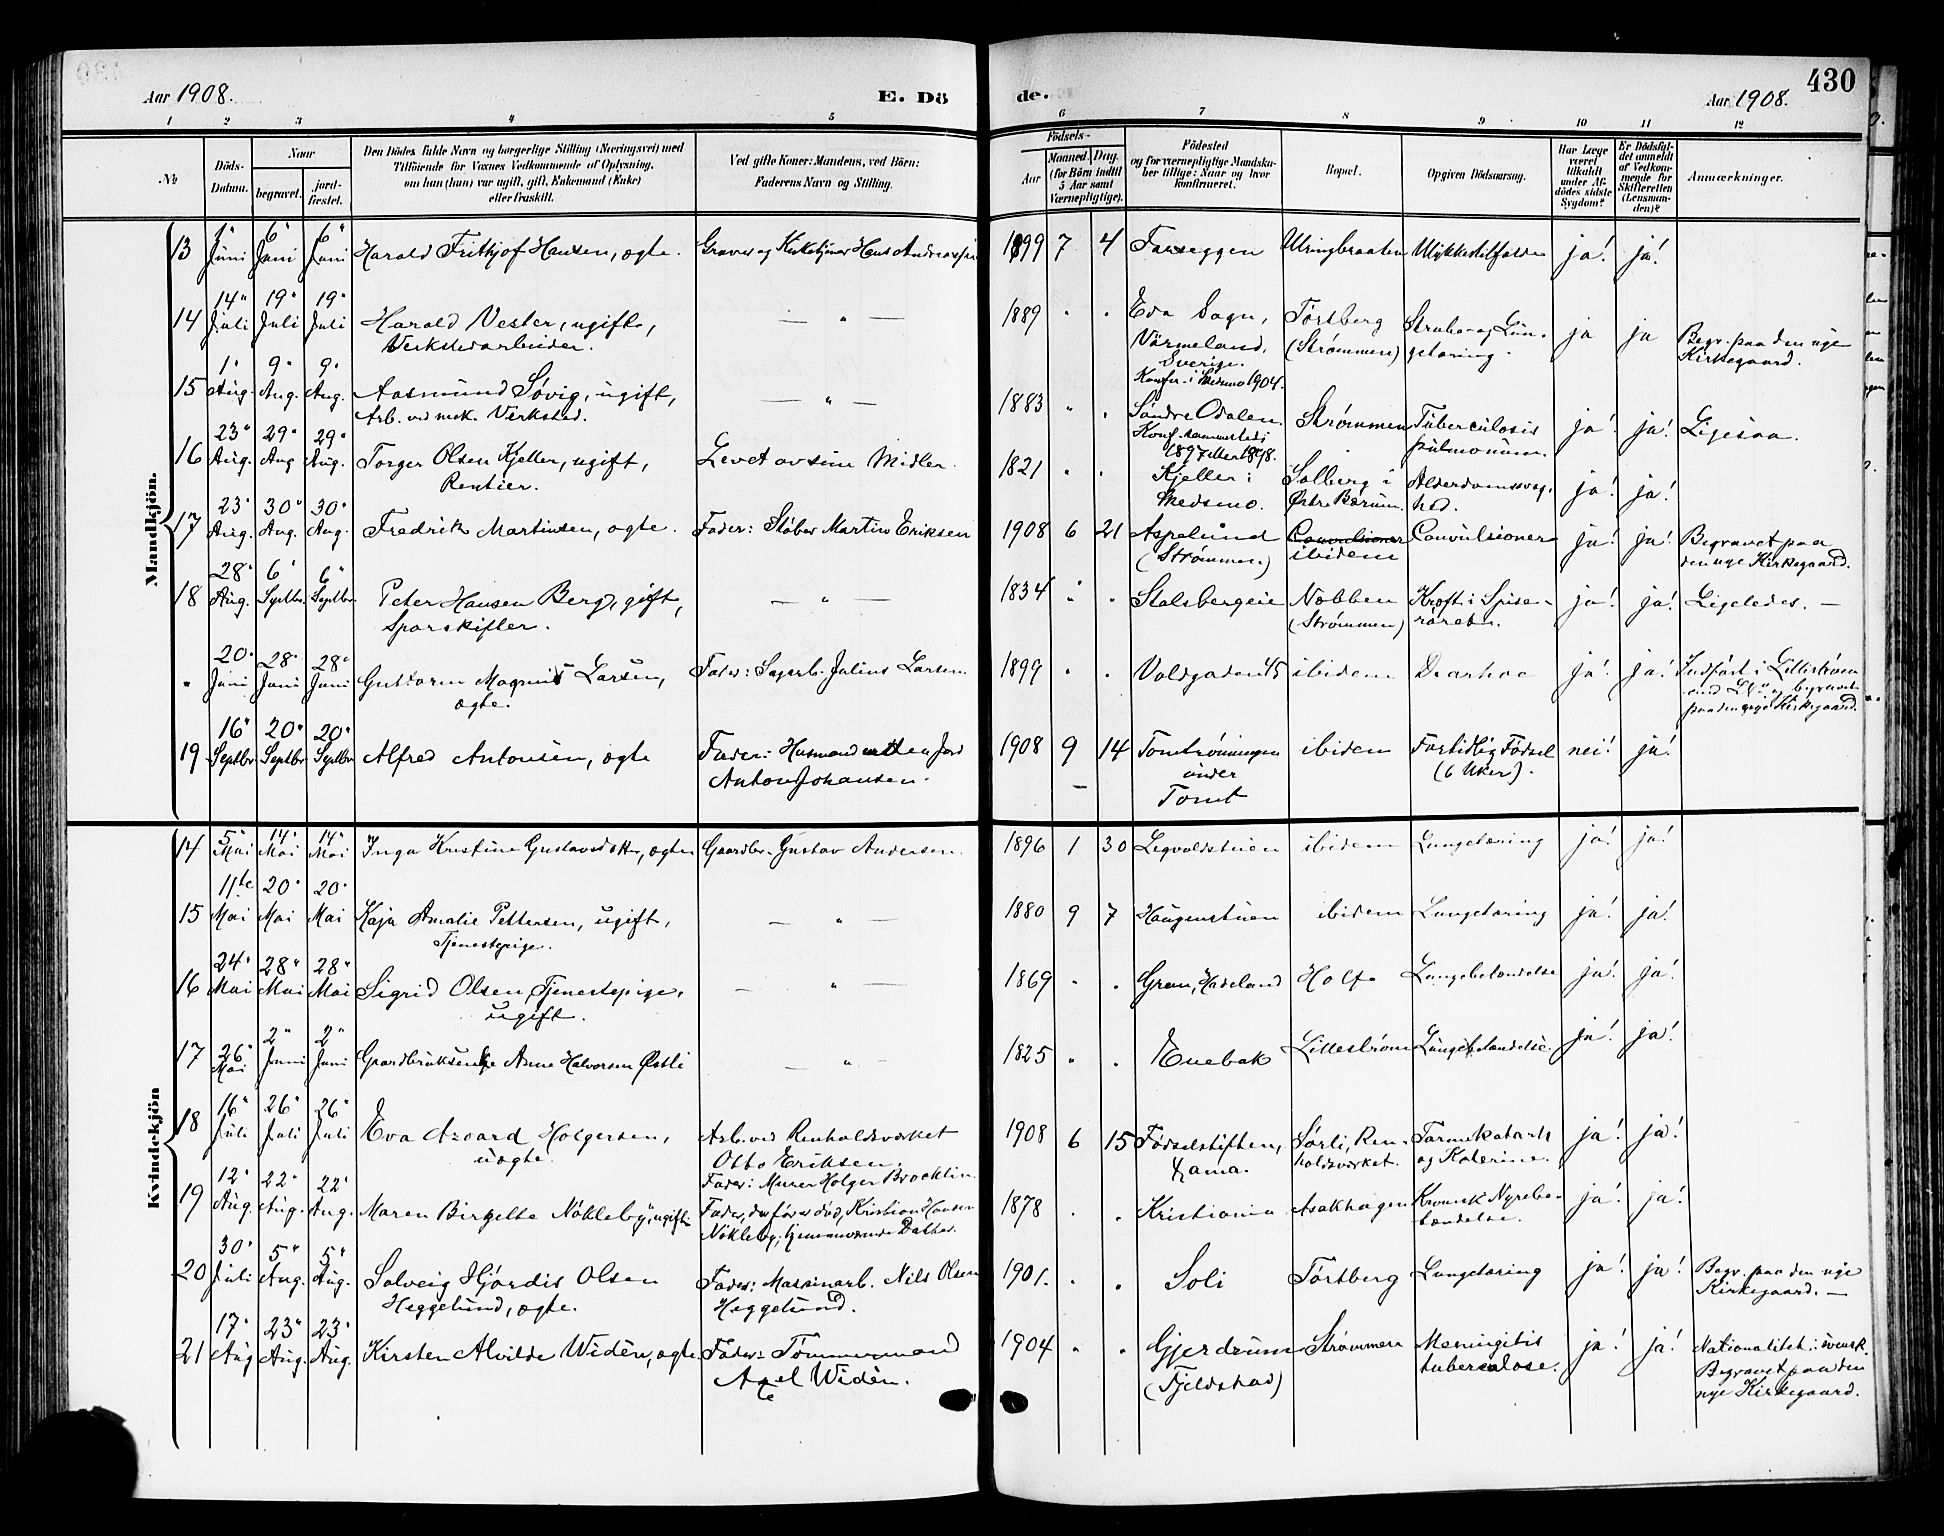 430
Aar 1908. E. Dö de. Aar 1908.
1 2 3 4 5 6 7 8 9 10 11 12
№ Döds-Datum. Naar begravet. jord-fæstet. Den Dödes fulde Navn og borgerlige Stilling (Næringsvei) med Tilföiende for Voxnes Vedkommende af Oplysning, om han (hun) var ugift, gift, Enkemand (Enke) eller fraskilt. Ved gifte Koner: Mandens, ved Börn: Faderens Navn og Stilling. Födsels- Aar Maaned. Dag. (for Börn indtil 5 Aar samt Værnepligtige). Födested og for værnepligtige Mandska-ber tillige: Naar og hvor konfirmeret. Bopæl. Opgiven Dödsaarsag. Har Læge været tilkaldt under Af-dödes sidste Sygdom? Er Dödsfal-det anmeldt af Vedkom-mende for Skifteretten (Lensman-den)? Anmærkninger.
Mandkjön.
13 1" Juni 6" Juni 6" Juni Harald Frithjof Hansen, ægte. Graver og Kirketjener Hans Andreassen 1899 7 4 Farseggen Ulringbraaten Ulykkestilfælde ja! ja!
14 14" Juli 19" Juli 19" Juli Harald Vester, ugift, Verkstedarbeider. — " — 1889 " " Eda Sogn, Värmeland, Sverige. Konfer. i Skedsmo 1904. Tørtberg (Strømmen) Strube- og Lun-getæring. ja ja Begr. paa den nye Kirkegaard.
15 1" Aug. 9" Aug. 9" Aug. Aasmund Søvig, ugift, Arb. ved mek. Verksted. — " — 1883 " " Søndre Odalen. Konf. sammesteds 1897 eller 1898. Strømmen Tuberculosis pulmonum. ja! ja! Ligesaa.
16 23" Aug. 29" Aug 29" Aug. Torger Olsen Kjeller, ugift, Rentier. Levet av sine Midler. 1821 " " Kjeller i Skedsmo. Solberg i Østre Bærum. Alderdomssvag-hed. ja! ja!
17 23" Aug. 30" Aug. 30" Aug. Fredrik Martinsen, ægte. Fader: Støber Martin Eriksen 1908 6 21 Aspelund (Strømmen.) Convulsioner ibidem Convulsioner ja! ja! Begravet paa den nye Kirkegaard.
18 28" Aug. 6" Septbr. 6" Septbr Peter Hansen Berg, gift, Sporskifter. — " — 1834 " " Stalsbergeie Nobben (Strømmen) Kræft i Spise-røret. ja! ja! Ligeledes. —
" 20" Juni 28" Juni 28" Juni Guttorm Magnus Larsen, ægte. Fader: Sagarb. Julius Larsen 1899 " " Voldgaden 45 ibidem Diarhoe ja! ja! Indført i Lillestrøm begravet paa den nye Kirkegaard.
19 16" Septbr. 20" Septbr 20" Septbr Alfred Antonsen, ægte Fader: Husmand uten Jord Anton Johansen. 1908 9 14 Tomtrømningen under Tomt ibidem Fortidlig Fødsel (6 Uker). nei! ja!
Kvindekjön
14 5" Mai 14" Mai 14" Mai Inga Kristine Gustavsdatter, ægte Gaardbr. Gustav Andersen. 1896 1 30 Leqvoldstuen ibidem Lungetæring ja! ja!
15 11te Mai 20" Mai 20" Mai Kaja Amalie Pettersen, ugift, Tjenestepige. — " — 1880 9 7 Haugenstuen ibidem Lungetæring ja! ja!
16 24" Mai 28" Mai 28" Mai Sigrid Olsen, Tjenestepige, ugift. — " — 1869 " " Gran, Hadeland Holt Lungebetændelse ja! ja!
17 26" Mai 2" Juni 2" Juni Gaardbrukerenke Anne Halvorsen Østli — " — 1825 " " Enebak Lillestrøm Lungebetændelse. ja! ja!
18 16" Juli 26" Juli 26" Juli Eva Azoard Holgersen, uægte. Arb. ved Renholdsverket Otto Eriksen. Fader: Murer Holger Brocklin 1908 6 15 Fødselstiften, Kama. Sørli, Ren-holdsverket. Tarmekatarh og Katerine. ja! ja!
19 12" Aug. 22" Aug. 22" Aug. Maren Birgitte Nökleby, ugift Fader, da før er død, Kristian Hansen Nökleby, hjemmeværende Datter. 1878 " " Kristiania Asakhagen Kronisk Nyrebe-tændelse. ja! ja!
20 30" Juli 5" Aug. 5" Aug. Solveig Hjørdis Olsen Heggelund, ægte. Fader: Maskinarb. Nils Olsen Heggelund. 1901. " " Soli Tørtberg Lungetæring ja! ja! Begr. paa den nye Kirkegaard. —
21 17" Aug 23" Aug. 23" Aug. Kirsten Alvilde Widèn, ægte Fader: Tømmermand Axel Widèn. 1904 " " Gjerdrum (Fjeldstad) Strømmen Meningitis tuberculose. ja! ja! Nationalitet: svensk. Begravet paa den nye Kirkegaard.